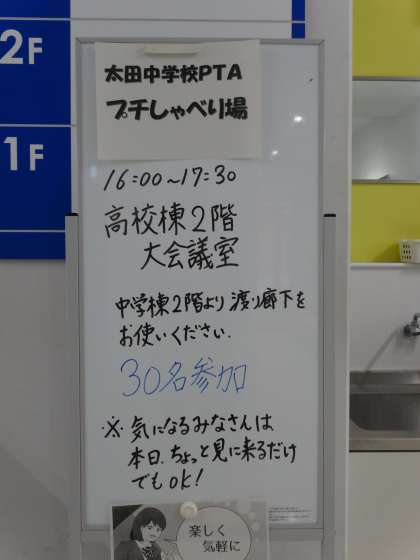 2F
1F
太田中学校PTA
プチしゃべり場
16:00〜17:30
高校棟2階
大会議室
中学棟2階より渡り廊下を
お使いください.
30名参加
※ 気になるみなさんは
本日、ちょっと見に来るだけ
でもOK!
楽しく
気軽に